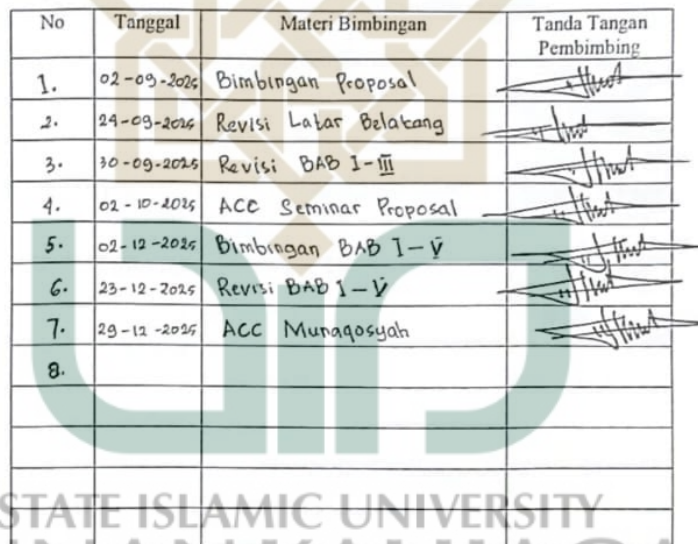 No Tanggal Materi Bimbingan Tanda Tangan
Pembimbing
1. 02-09-2025 Bimbingan Proposal
2. 24-09-2025 Revisi Latar Belakang
3. 30-09-2025 Revisi BAB I-III
4. 02-10-2025 ACC Seminar Proposal
5. 02-12-2025 Bimbingan BAB I-V
6. 23-12-2025 Revisi BAB I-V
7. 29-12-2025 ACC Munaqosyah
8.
STATE ISLAMIC UNIVERSITY